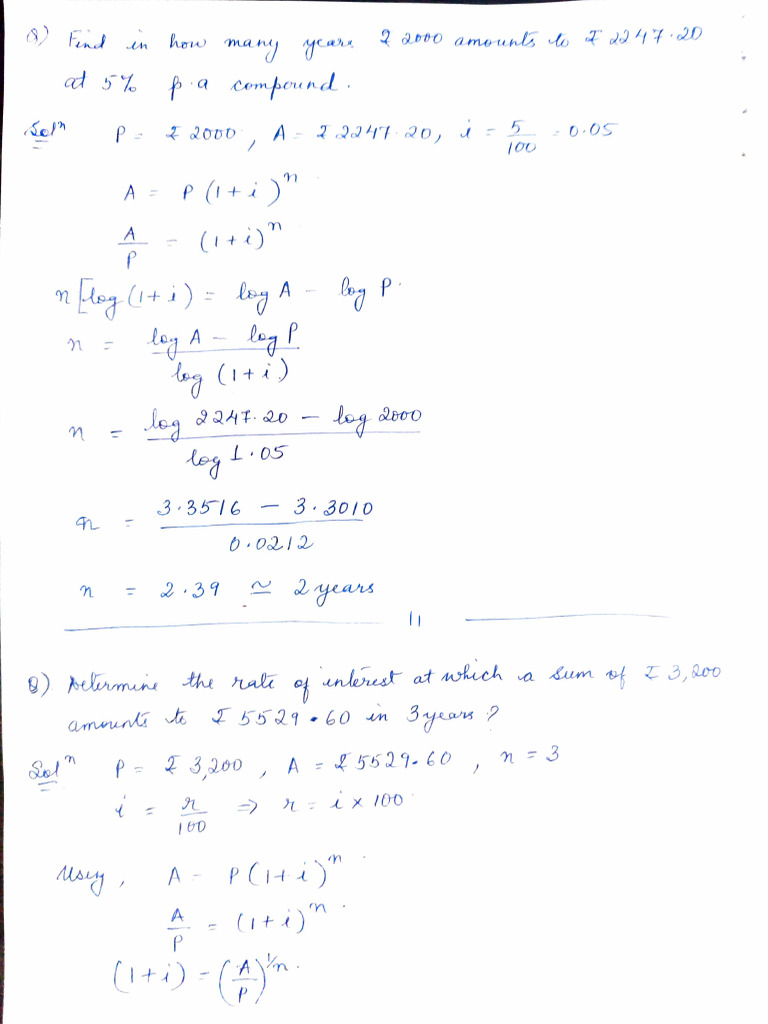 Q) Find in how many years ₹ 2000 amounts to ₹ 2247.20
at 5% p.a compound.
Solⁿ P = ₹ 2000, A = ₹ 2247.20, i = 5/100 = 0.05
A = P(1+i)ⁿ
A/P = (1+i)ⁿ
n[log(1+i) = log A - log P.
n = log A - log P / log (1+i)
n = log 2247.20 - log 2000 / log 1.05
n = 3.3516 - 3.3010 / 0.0212
n = 2.39 ≃ 2 years
Q) Determine the rate of interest at which a sum of ₹ 3,200
amounts to ₹ 5529.60 in 3 years?
Solⁿ P = ₹ 3,200, A = ₹ 5529.60, n = 3
i = r/100 ⇒ r = i × 100
Using, A = P(1+i)ⁿ.
A/P = (1+i)ⁿ.
(1+i) = (A/P)^1/n.